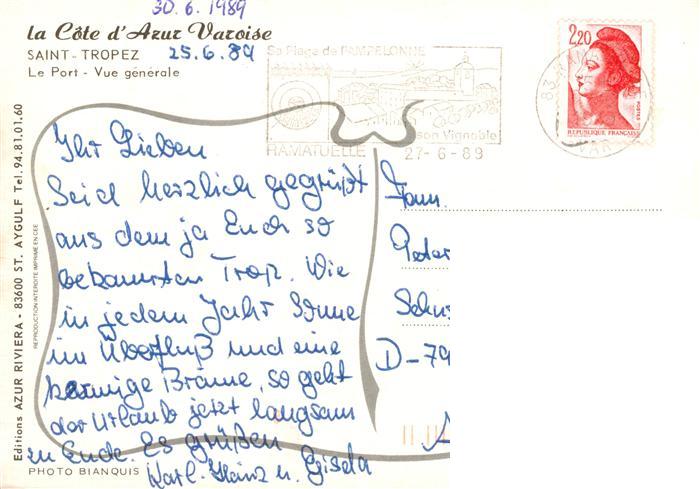 30.6.1989
la Côte d'Azur Varoise
SAINT-TROPEZ 25.6.89
Le Port - Vue générale
Editions AZUR RIVIERA - 83600 ST. AYGULF Tel. 94.81.01.60
REPRODUCTION INTERDITE IMPRIMÉ EN CEE
Sa Plage de PAMPELONNE
Son Vignoble
RAMATUELLE 27-6-89
83
VAR
2,20
POSTES
REPUBLIQUE FRANÇAISE
Ihr Lieben
Seid herzlich gegrüßt
aus dem ja Euch so
bekannten Trop. Wie
in jedem Jahr Sonne
im Überfluß und eine
Bräune, so geht
der Urlaub jetzt langsam
zu Ende. Es grüßen
Karl-Heinz u. Gisela
Fam.
Peter
D-79
PHOTO BIANQUIS